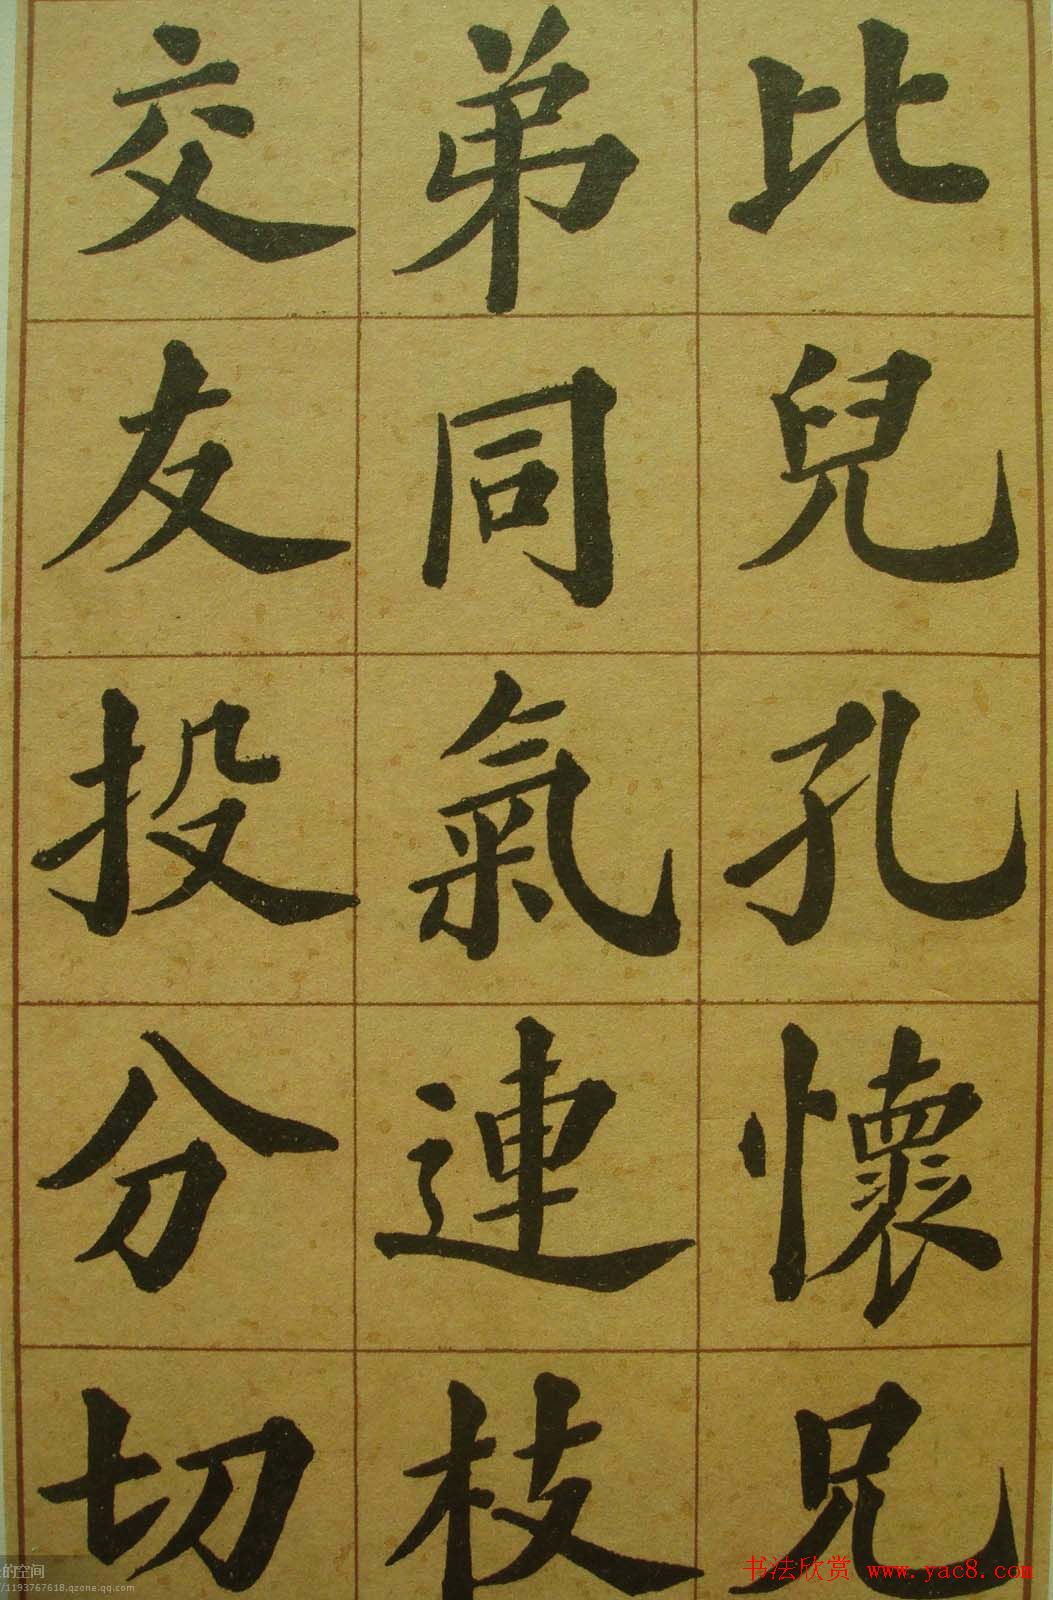 比兒孔懷兄
弟同氣連枝
交友投分切
书法欣赏 www.yac8.com
的空间
/1193767618.qzone.qq.com